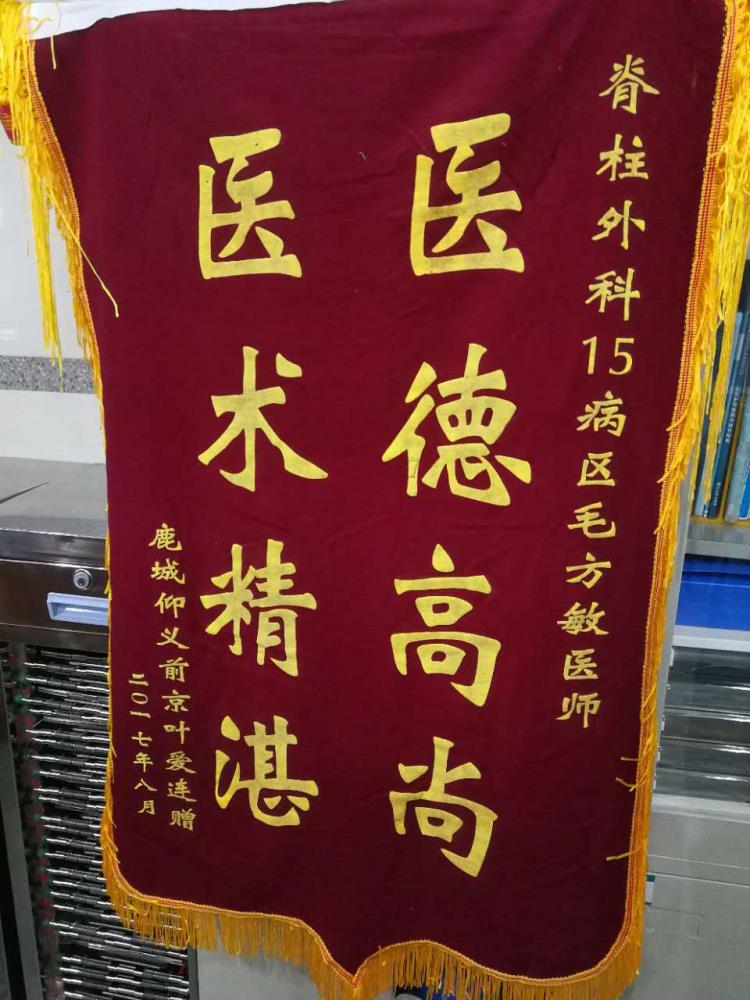 脊柱外科15病区毛方敏医师
医德高尚
医术精湛
鹿城仰义前京叶爱连赠
二〇一七年八月